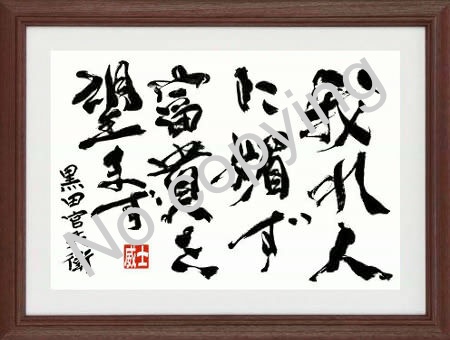 我れ人
に媚ず
富貴を
望まず
黒田官兵衛
威士
No copying